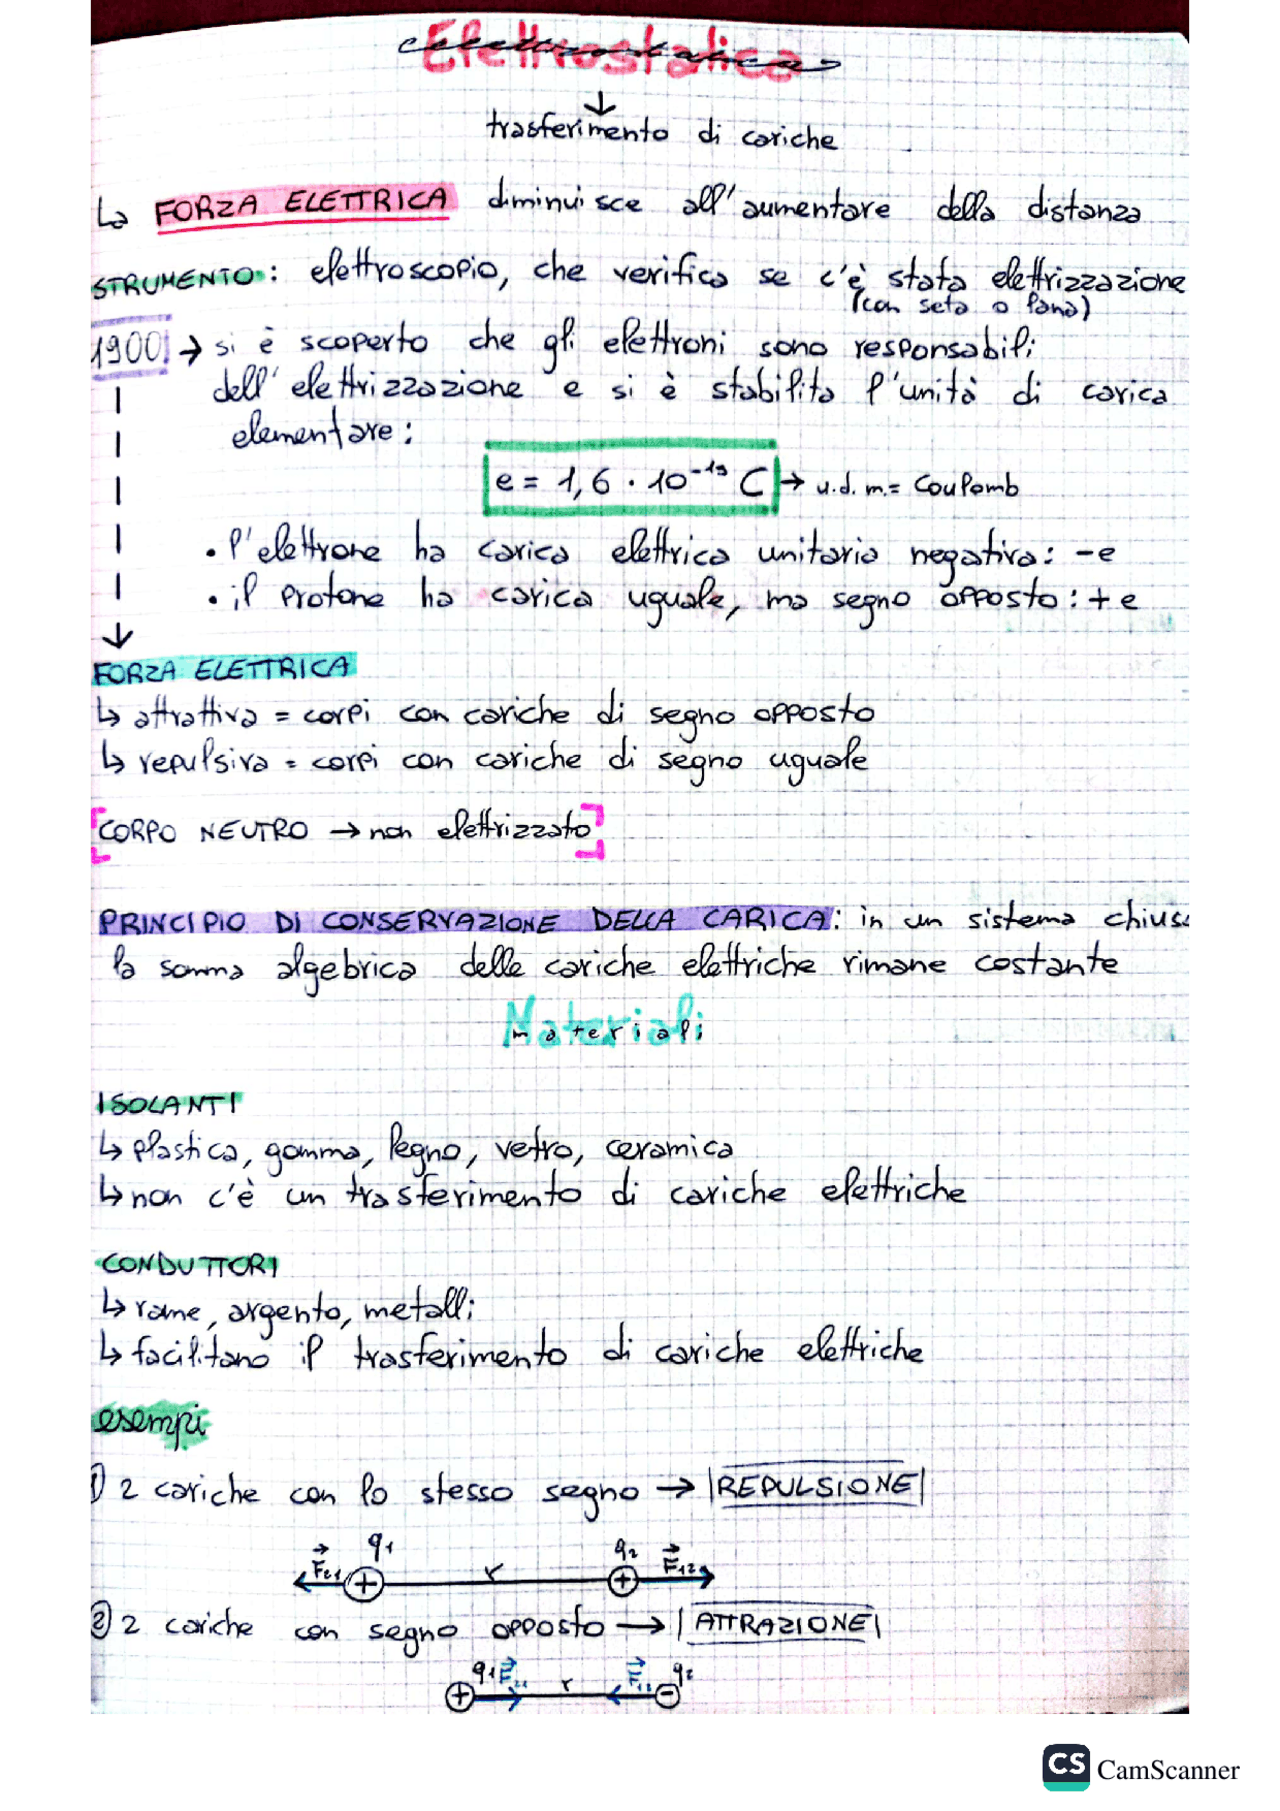 Elettrostatica
↓
trasferimento di cariche
↳ FORZA ELETTRICA diminuisce all'aumentare della distanza
STRUMENTO: elettroscopio, che verifica se c'è stata elettrizzazione
(con seta o lana)
1900 → si è scoperto che gli elettroni sono responsabili
dell'elettrizzazione e si è stabilita l'unità di carica
elementare:
e = 1,6 · 10⁻¹⁹ C → u.d.m. = Coulomb
• l'elettrone ha carica elettrica unitaria negativa: -e
• il protone ha carica uguale, ma segno opposto: +e
FORZA ELETTRICA
↳ attrattiva = corpi con cariche di segno opposto
↳ repulsiva = corpi con cariche di segno uguale
[CORPO NEUTRO → non elettrizzato]
PRINCIPIO DI CONSERVAZIONE DELLA CARICA: in un sistema chiuso
la somma algebrica delle cariche elettriche rimane costante
Materiali
ISOLANTI
↳ plastica, gomma, legno, vetro, ceramica
↳ non c'è un trasferimento di cariche elettriche
CONDUTTORI
↳ rame, argento, metalli
↳ facilitano il trasferimento di cariche elettriche
esempi
1) 2 cariche con lo stesso segno → |REPULSIONE|
F₂₁ q₁ r q₂ F₁₂
+ +
2) 2 cariche con segno opposto → |ATTRAZIONE|
q₁ F₂₁ r q₂
+ −
CS CamScanner